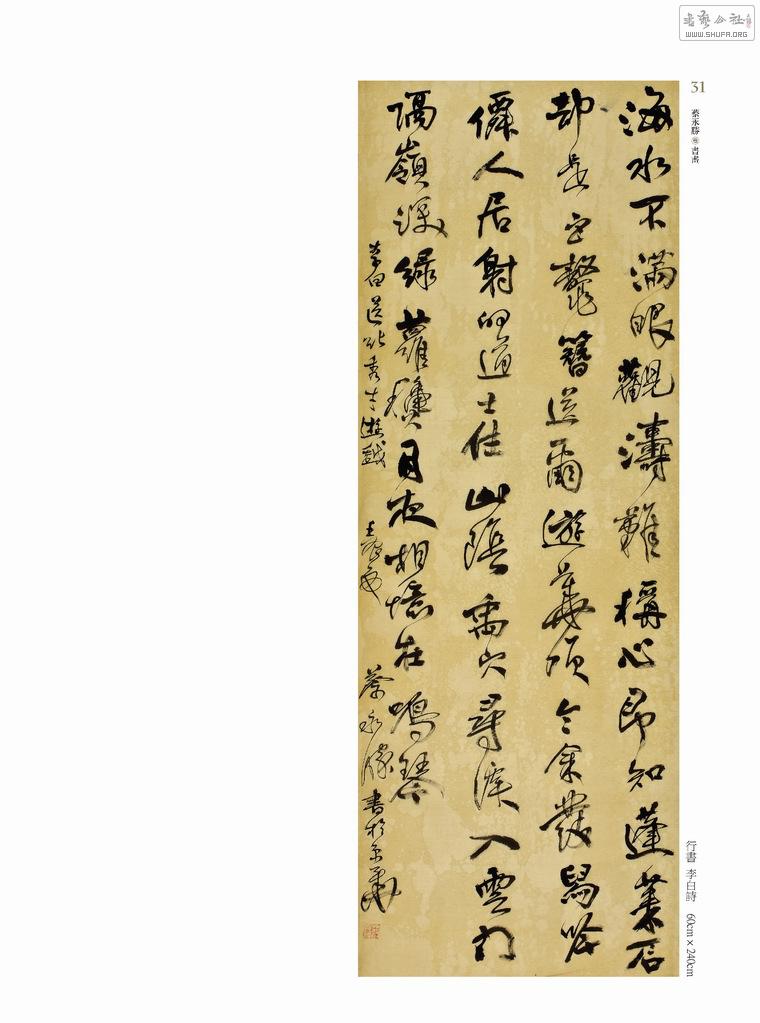 書藝公社
WWW.SHUFA.ORG
31
蔡永勝 書畫
海水不滿眼觀濤難稱心即知蓬萊石
却是巨鼇簪送爾遊華頂令余發舄吟
僊人居射的道士住山陰禹穴尋溪入雲門
隔嶺深綠蘿龝月夜相憶在鳴琴
李白送紀秀才遊越 蔡永勝書於京華
行書 李白詩 60cm×240cm